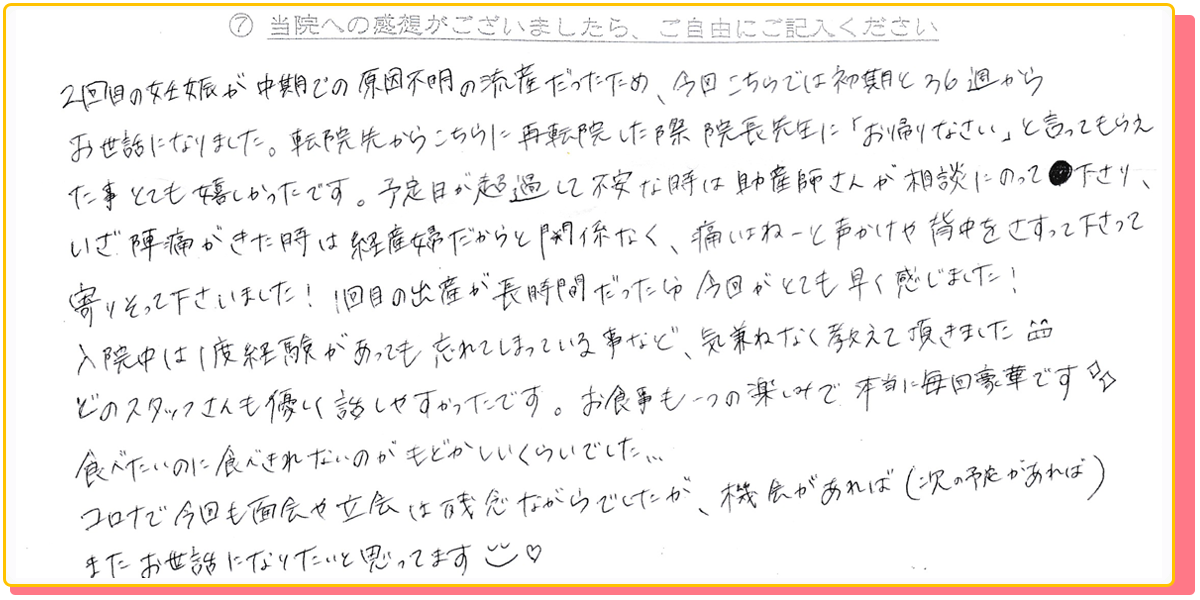 ⑦ 当院への感想がございましたら、ご自由にご記入ください
2回目の妊娠が中期での原因不明の流産だったため、今回こちらでは初期と36週から
お世話になりました。転院先からこちらに再転院した際院長先生に「お帰りなさい」と言ってもらえ
た事とても嬉しかったです。予定日が超過して不安な時は助産師さんが相談にのって下さり、
いざ陣痛がきた時は経産婦だからと関係なく、痛いねーと声かけや背中をさすって下さって
寄りそって下さいました！1回目の出産が長時間だった分今回がとても早く感じました！
入院中は1度経験があっても忘れてしまっている事など、気兼ねなく教えて頂きました
どのスタッフさんも優しく話しやすかったです。お食事も一つの楽しみで本当に毎回豪華です
食べたいのに食べきれないのがもどかしいくらいでした...
コロナで今回も面会や立会は残念ながらでしたが、機会があれば(次の予定があれば)
またお世話になりたいと思ってます♡